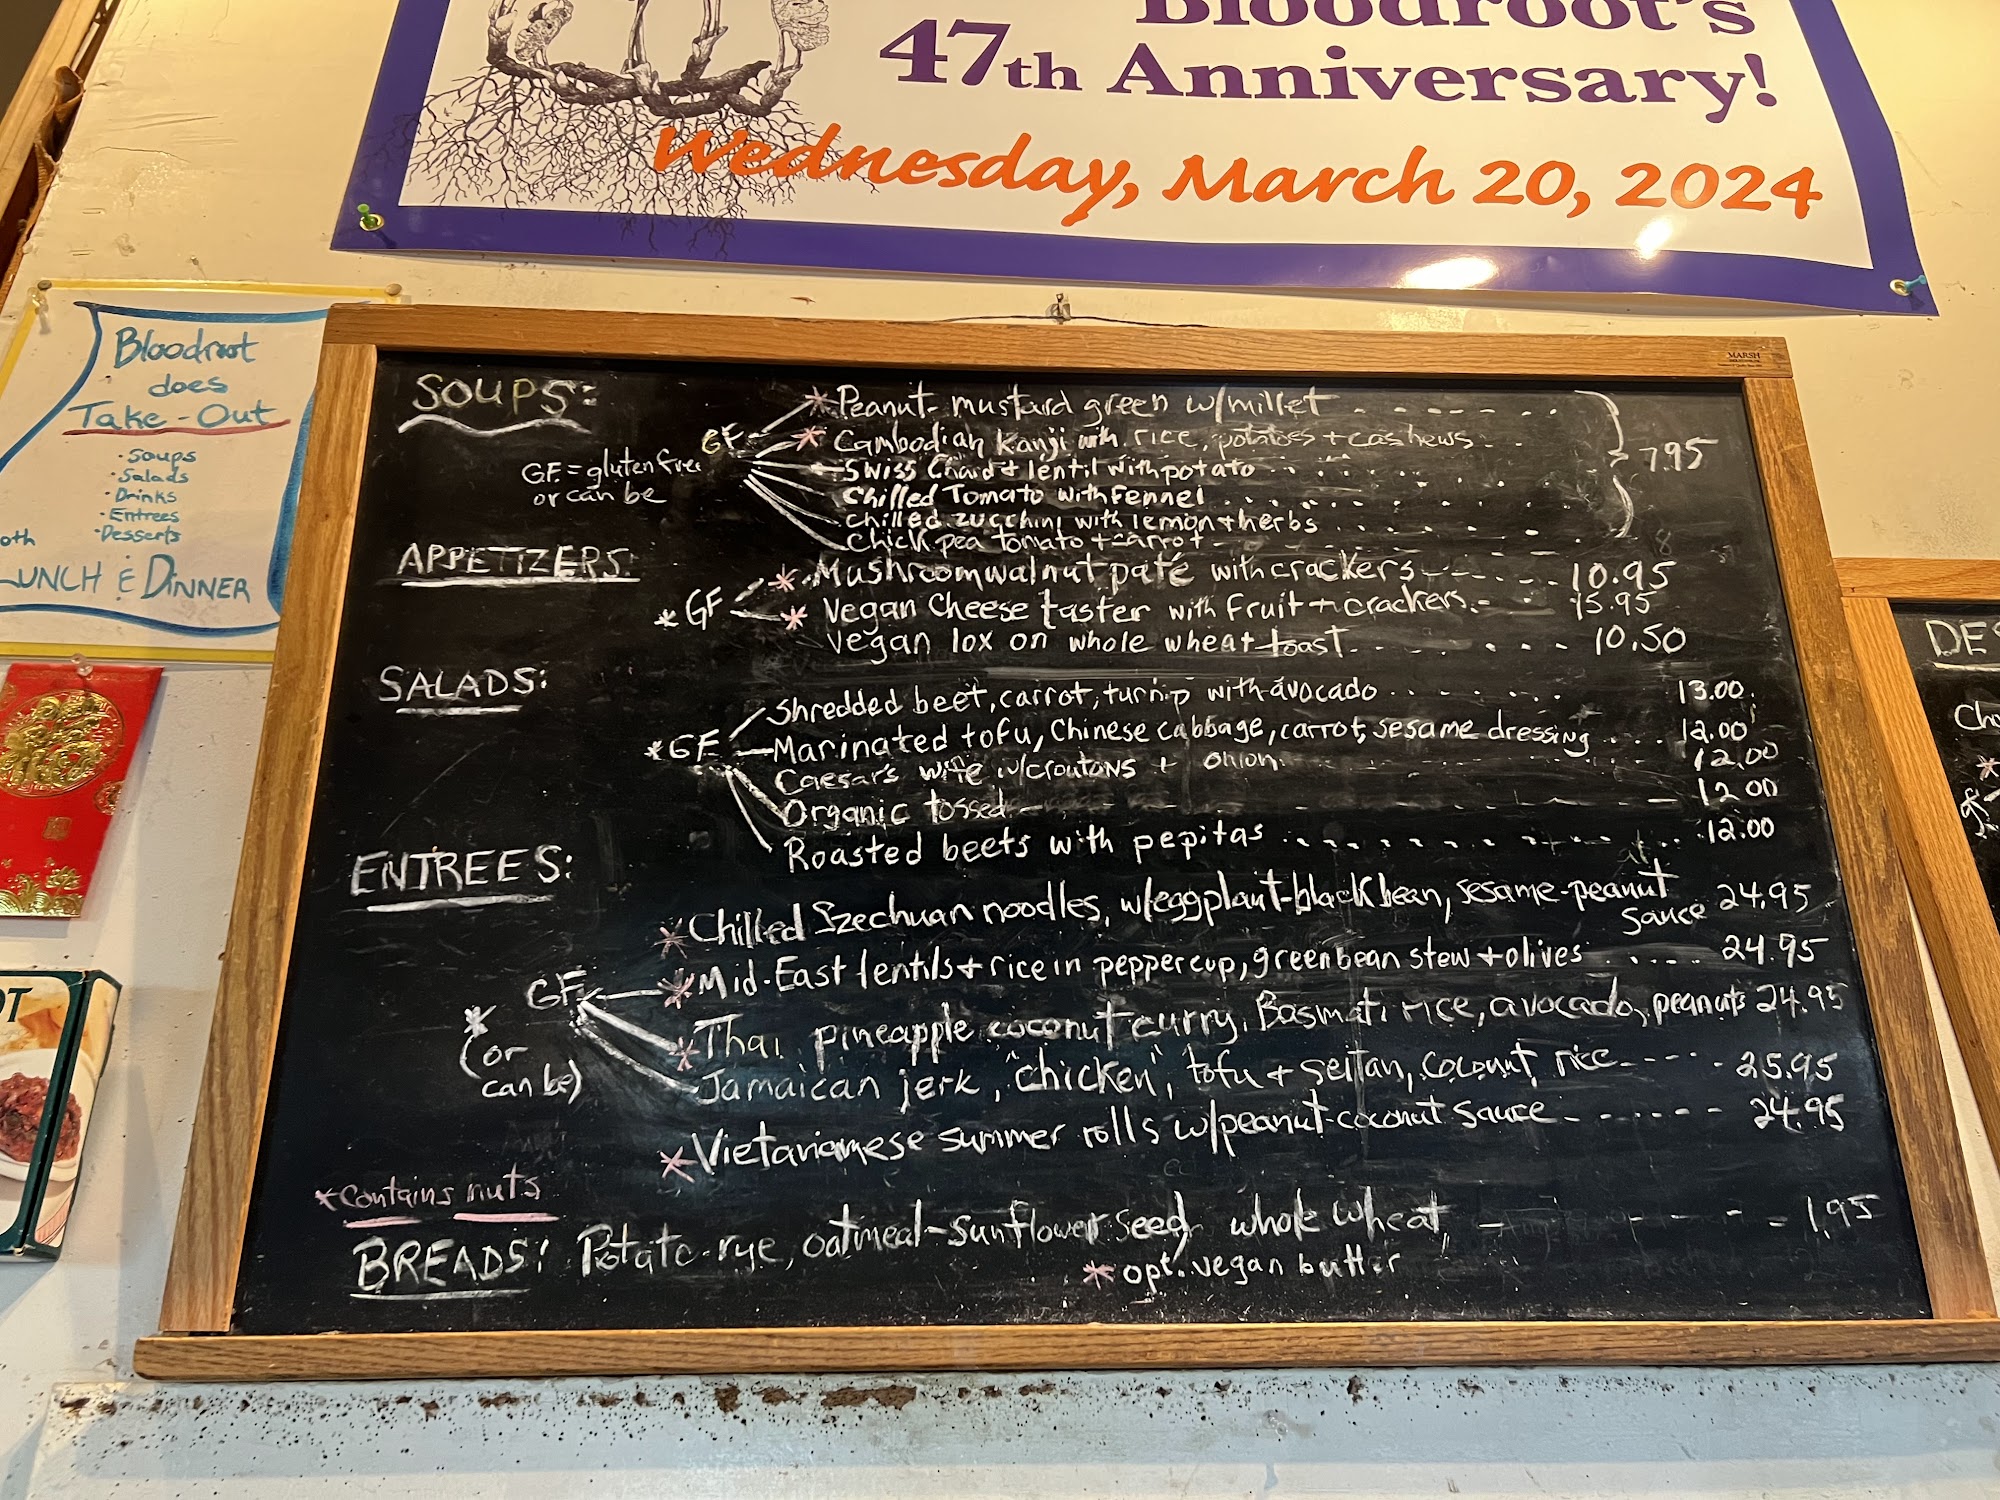 Bloodroot's
47th Anniversary!
Wednesday, March 20, 2024
Bloodroot
does
Take-Out
• Soups
• Salads
• Drinks
• Entrees
• Desserts
oth
LUNCH & DINNER
MARSH
SOUPS:
GF = gluten free
or can be
GF
* Peanut-mustard green w/millet
* Cambodian Kanji with rice, potatoes + cashews
Swiss Chard + lentil with potato
Chilled Tomato with Fennel
Chilled zucchini with lemon + herbs
Chick pea tomato + carrot
7.95
APPETIZERS:
* GF
* Mushroom walnut paté with crackers 10.95
* Vegan Cheese taster with fruit + crackers 15.95
Vegan lox on whole wheat toast 10.50
SALADS:
* GF
Shredded beet, carrot, turnip with avocado 13.00
Marinated tofu, Chinese cabbage, carrot, sesame dressing 12.00
Caesar's wife w/croutons + onion 12.00
Organic tossed 12.00
Roasted beets with pepitas 12.00
ENTREES:
GF
* (or
can be)
* Chilled Szechuan noodles, w/eggplant-black bean, sesame-peanut
sauce 24.95
* Mid-East lentils + rice in pepper cup, green bean stew + olives 24.95
* Thai pineapple coconut curry, Basmati rice, avocado, peanuts 24.95
Jamaican jerk, "chicken", tofu + seitan, coconut rice 25.95
* Vietnamese summer rolls w/peanut-coconut sauce 24.95
* Contains nuts
BREADS: Potato-rye, oatmeal-sunflower seed, whole wheat, 1.95
* opt. vegan butter
DES